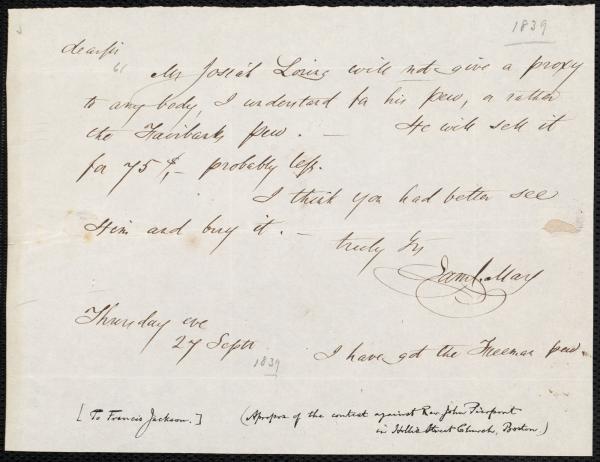 1839
dear sir
Mr Josiah Loring will not give a proxy
to any body, I understand for his pew, or rather
the Fairbanks pew. — He will sell it
for 75 $, — probably less.
I think you had better see
Him and buy it. —
truly Yrs
Saml. May
Thursday eve
27 Septr
1839
I have got the Freeman pew.
[To Francis Jackson.]
(Apropos of the contest against Rev. John Pierpont
in Hollis Street Church, Boston.)